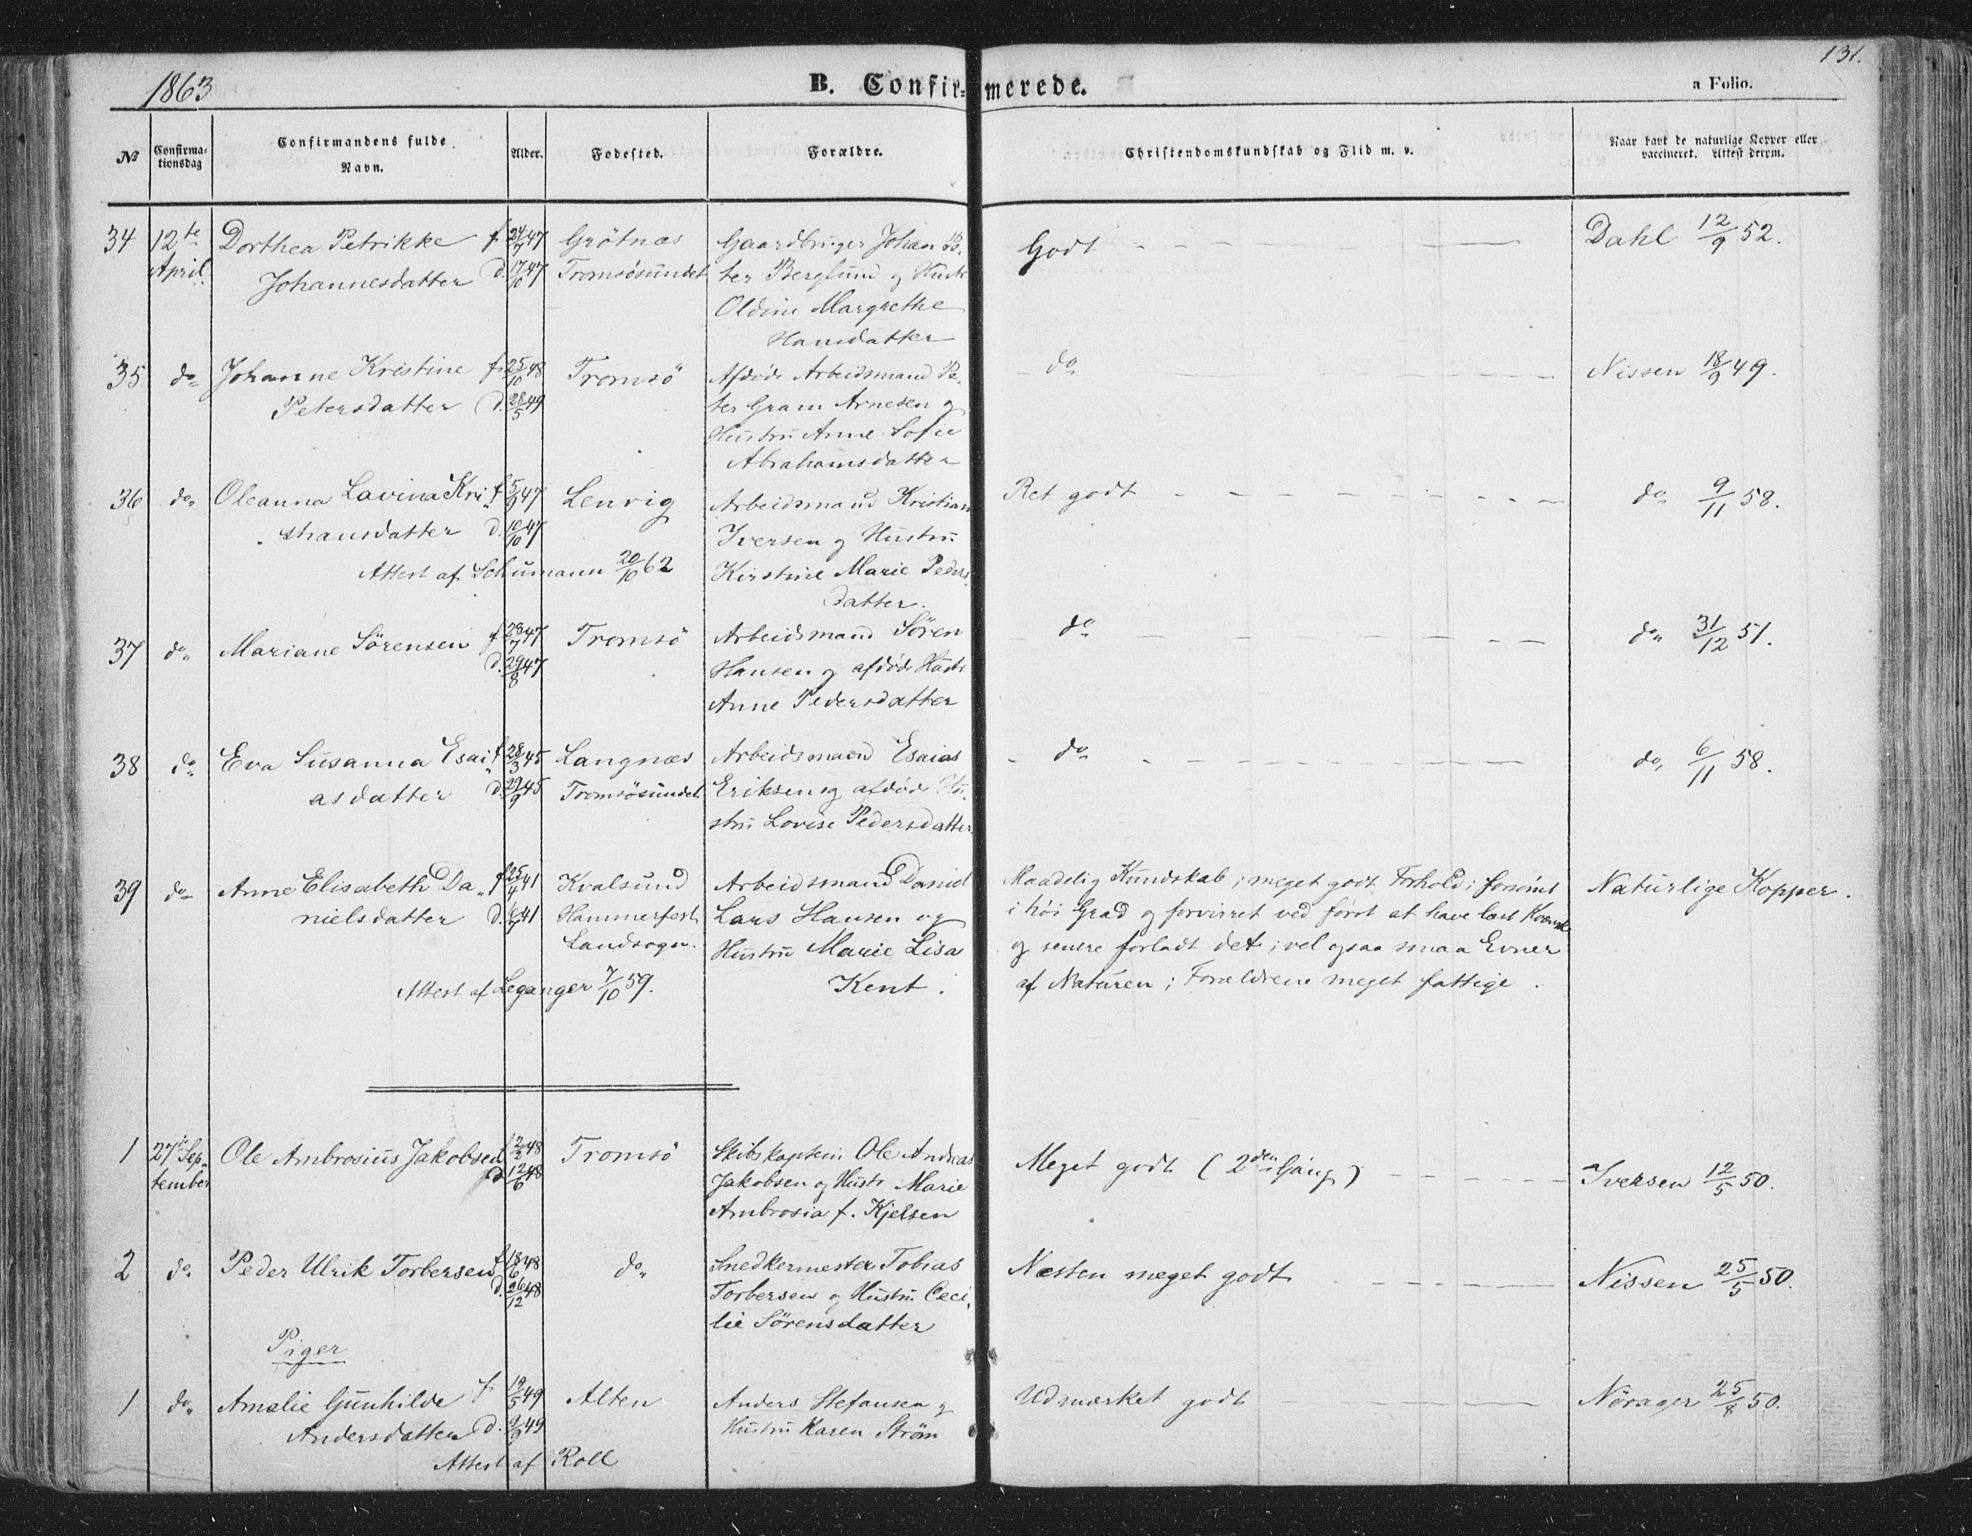 1863
B. Confir-merede.
131.
a Folio.
№
Confirma-
tionsdag
Confirmandens fulde
Navn.
Alder.
Fødested.
Forældre.
Christendomskundskab og Flid m. v.
Naar havt de naturlige Kopper eller
vaccineret. Attest derom.
34 12te Dorthea Petrikke f 24/7 47 Grötnæs Gaardbruger Johan P. Godt Dahl 12/9 52.
April Johannesdatter d. 17/10 47 Tromsösundet ter Berglund og Hustr
Oldine Margrethe
Hansdatter
35 do Johanne Kristine f. 25/10 48 Tromsö Afdöde Arbeidsmand Pe- do Nissen 18/9 49.
Petersdatter d. 28/5 49 ter Gram Arnesen og
Hustru Anne Sofie
Abrahamsdatter
36 do Oleanna Lavina Kri f 5/9 47 Lenvig Arbeidsmand Kristian Ret godt do 9/11 58.
stiansdatter d. 10/10 47 Iversen og Hustru
Attest af Schumann 20/10 62 Kirstine Marie Peders
datter.
37 do Mariane Sörensen f 28/7 47 Tromsö Arbeidsmand Sören do do 31/12 51.
d. 29/8 47 Hansen og afdöde Hustr
Anne Pedersdatter
38 do Eva Susanna Esai f 28/3 45 Langnæs Arbeidsmand Esaias do do 6/11 58.
asdatter d. 29/9 45 Tromsösundet Eriksen og afdöde Hu-
stru Lovise Pedersdatter
39 do Anne Elisabeth Da f 25/4 41 Kvalsund Arbeidsmand Daniel Maadelig Kundskab; meget godt Forhold; forsömt Naturlige Kopper.
nielsdatter d. 41 Hammerfest Lars Hansen og i höi Grad og forvirret ved först at have læst Kvænsk
Landsogn. Hustru Marie Lisa og senere forladt det; vel ogsaa smaa Evner
Attest af Leganger 7/10 59. Kent. af Naturen; Forældrene meget fattige.
1 27de Sep- Ole Ambrosius Jakobsen f 2/3 48 Tromsö Skibskaptein Ole Andreas Meget godt (2den Gang) Iversen 12/5 50.
tember d 12/6 48 Jakobsen og Hustr Marie
Ambrosia f. Kjelsen
2 do Peder Ulrik Torbersen f 18/6 48 do Snedkermester Tobias Næsten meget godt Nissen 25/5 50.
d. 26/12 48 Torbersen og Hustru Ceci-
lie Sörensdatter
Piger
1 do Amalie Gunhilde f 19/5 49 Alten Anders Stefansen og Udmærket godt Nörager 25/8 50.
Andersdatter d. 2/9 49 Hustru Karen Ström
Attest af Roll